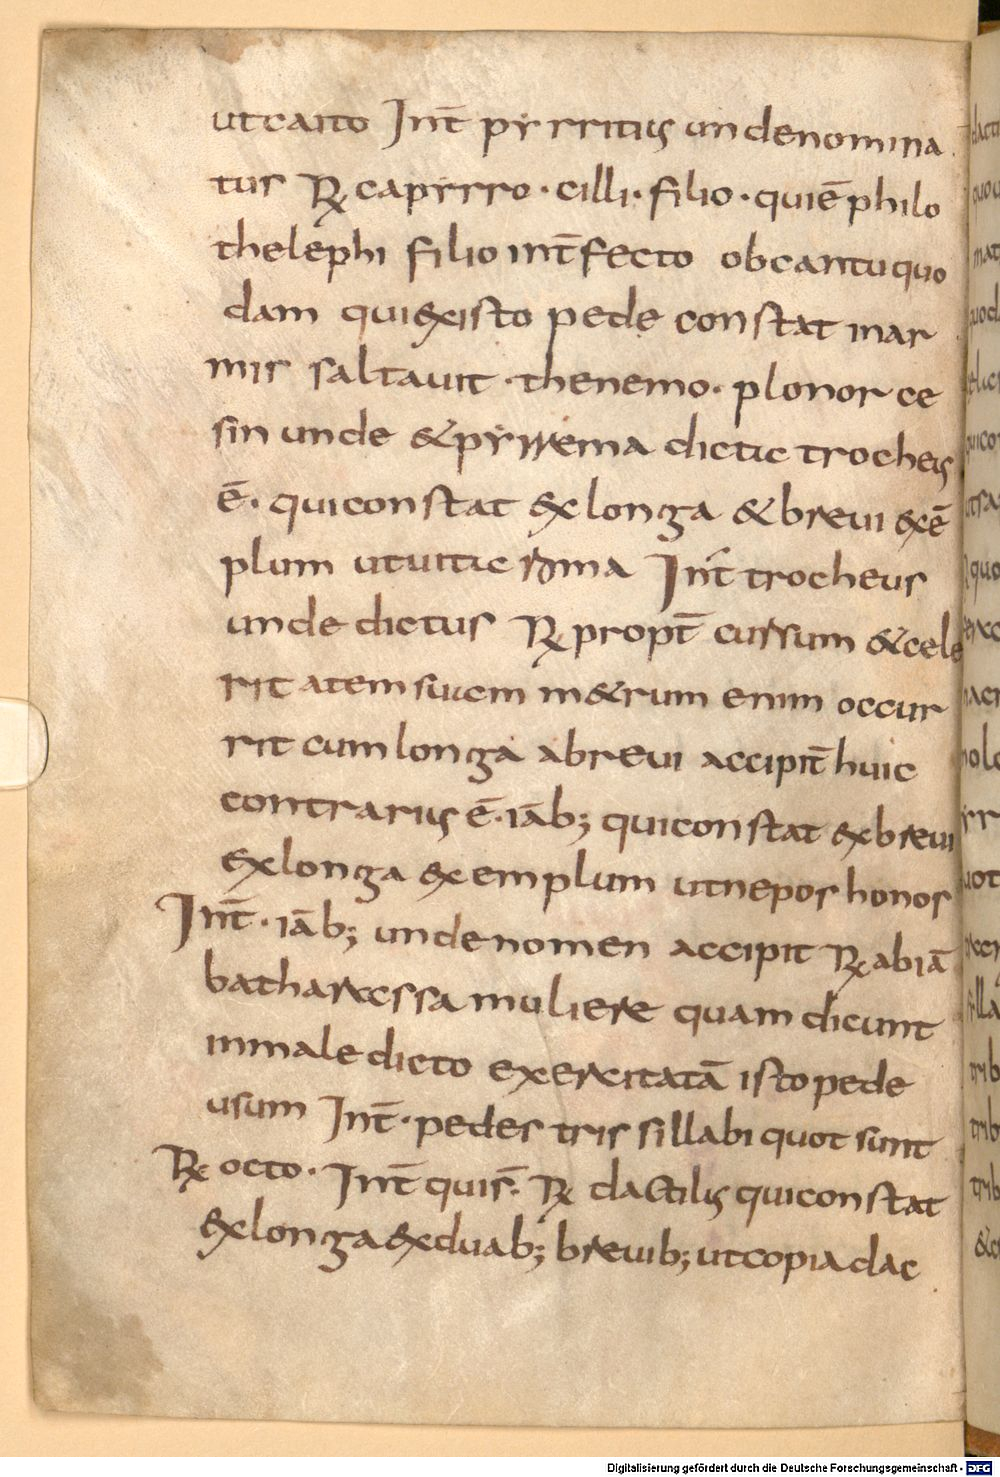 utcaito Int̄ pyrritius undenomina
tus R̄ capyrro · cilli · filio · quiē philo
thelephi filio int̄fecto obcantuquo
dam quiexisto pede constat inar
mis saltauit · thenemo · plonor ce
sin unde &pyrrema dictic trocheus
ē · quiconstat exlonga &breui exē
plum utuitic roma Int̄ trocheus
unde dictus R̄ propt̄ cursum &cele
ritatem suucm m&rum enim occur
rit cum longa abreui accipit̄ huic
contrarius ē · iāb; quiconstat exbreui
exlonga exemplum utnepos honos
Int̄ · iāb; undenomen accipit R̄ abiā
batharecssa muliere quam dicunt
inmaledicto exercitatā istopede
usum Int̄ · pedes tris sillabi quot sunt
R̄ octo · Int̄ quis̄ · R̄ dactilis quiconstat
exlonga exduab; breuib; utcopia dac
Digitalisierung gefördert durch die Deutsche Forschungsgemeinschaft - DFG